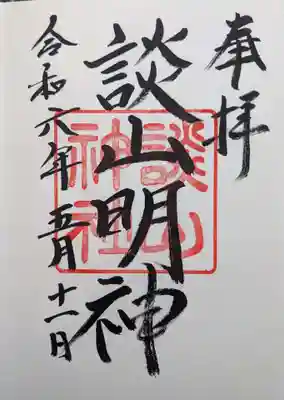 奉拝
談山明神
談山神社
令和六年五月十一日